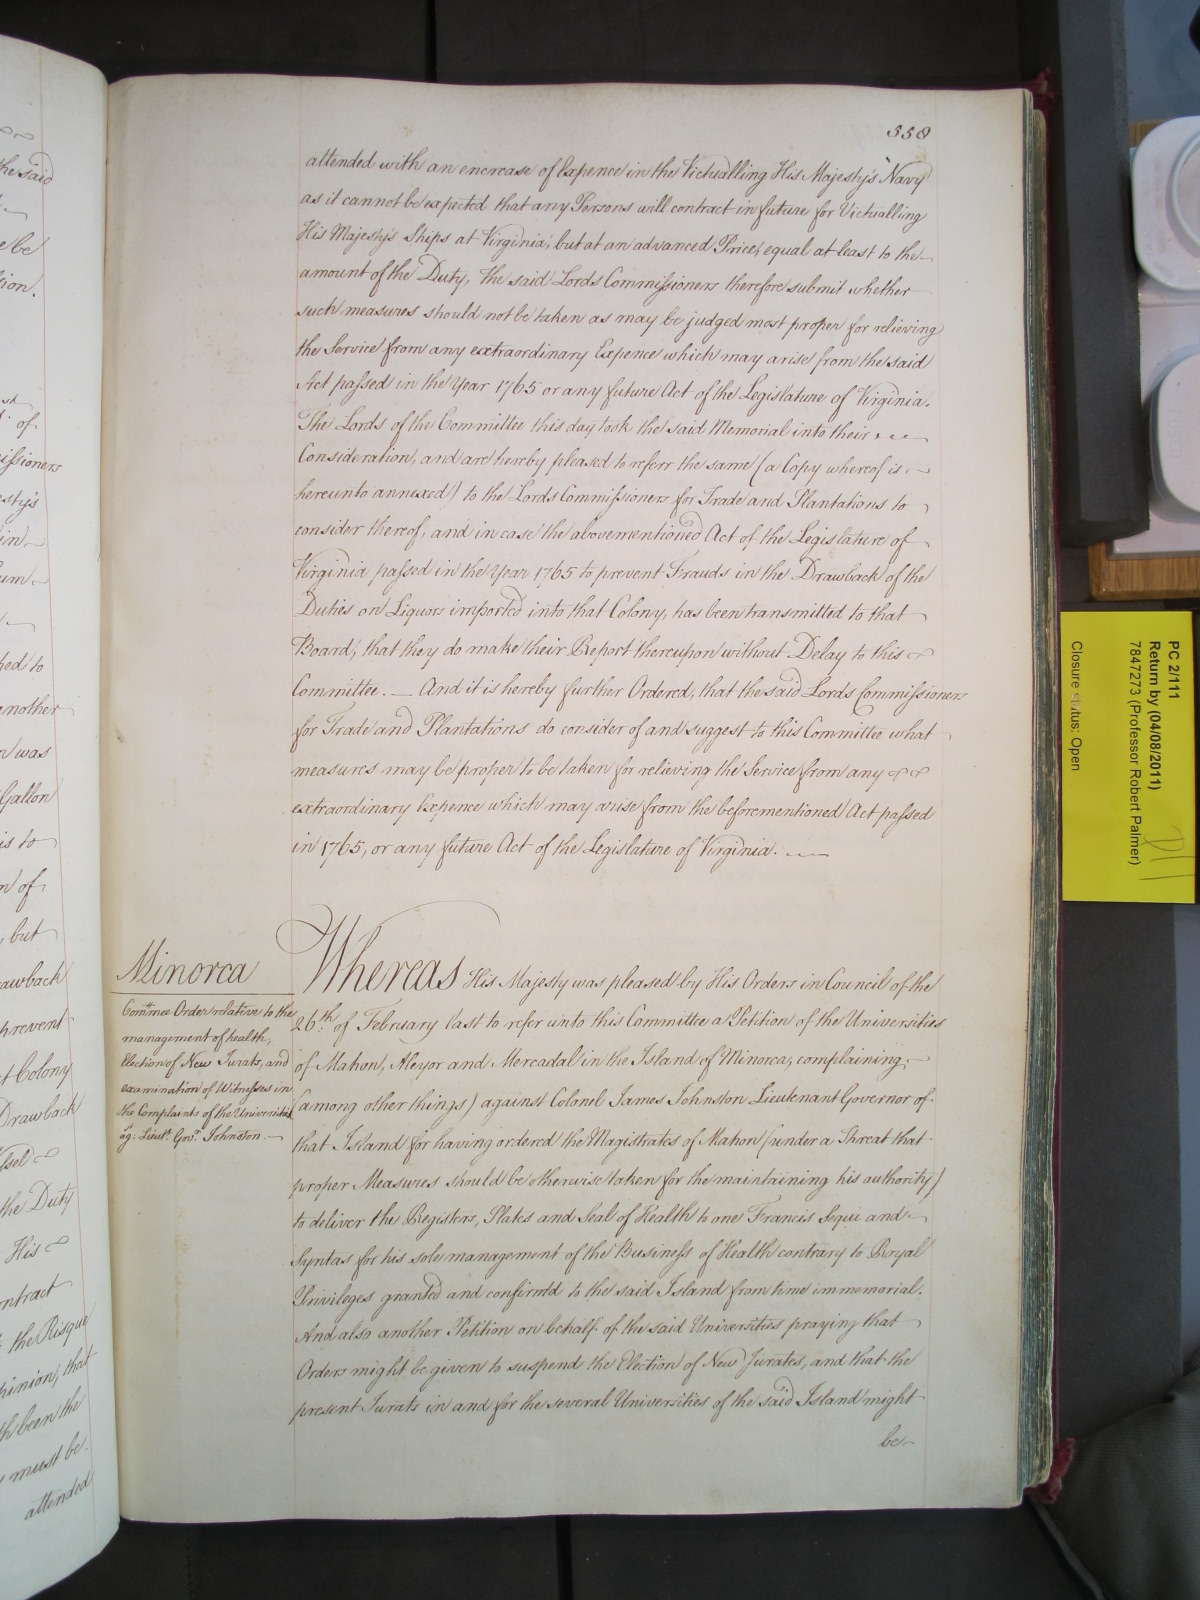 558
attended with an encrease of Expence in the Victualling His Majesty's Navy
as it cannot be expected that any Persons will contract in future for Victualling
His Majesty's Ships at Virginia, but at an advanced Price, equal at least to the
amount of the Duty, the said Lords Commissioners therefore submit whether
such measures should not be taken as may be judged most proper for relieving
the Service from any extraordinary Expence which may arise from the said
Act passed in the Year 1765 or any future Act of the Legislature of Virginia.
The Lords of the Committee this day took the said Memorial into their
Consideration, and are hereby pleased to referr the same (a Copy whereof is
hereunto annexed) to the Lords Commissioners for Trade and Plantations to
consider thereof, and in case the abovementioned Act of the Legislature of
Virginia passed in the Year 1765 to prevent Frauds in the Drawback of the
Duties on Liquors imported into that Colony, has been transmitted to that
Board, that they do make their Report thereupon without Delay to this
Committee. — And it is hereby further Ordered, that the said Lords Commissioners
for Trade and Plantations do consider of and suggest to this Committee what
measures may be proper to be taken for relieving the Service from any
extraordinary Expence which may arise from the beforementioned Act passed
in 1765, or any future Act of the Legislature of Virginia.
Minorca
Comttee Order relative to the
management of health,
Election of New Jurats, and
examination of Witnesses in
the Complaints of the Universities
ag: Lieut. Govr. Johnston.
Whereas His Majesty was pleased by His Orders in Council of the
26th of February last to refer unto this Committee a Petition of the Universities
of Mahon, Aleyor and Mercadal in the Island of Minorca, complaining
(among other things) against Colonel James Johnston Lieutenant Governor of
that Island for having ordered the Magistrates of Mahon (under a Threat that
proper Measures should be otherwise taken for the maintaining his authority)
to deliver the Registers, Plates and Seal of Health to one Francis Segui and
Syntas for his sole management of the Business of Health contrary to Royal
Privileges granted and confirmd to the said Island from time immemorial.
And also another Petition on behalf of the said Universities praying that
Orders might be given to suspend the Election of New Jurates, and that the
present Jurats in and for the several Universities of the said Island might
be
PC 2/111
Return by (04/08/2011)
7847273 (Professor Robert Palmer)
Closure status: Open
the said
sion.
of
issioners
another
n was
Gallon
is to
n of
, but
awback
prevent
Colony
Drawback
the Duty
His
ontract
the Risque
pinion, that
th been the
must be
attended